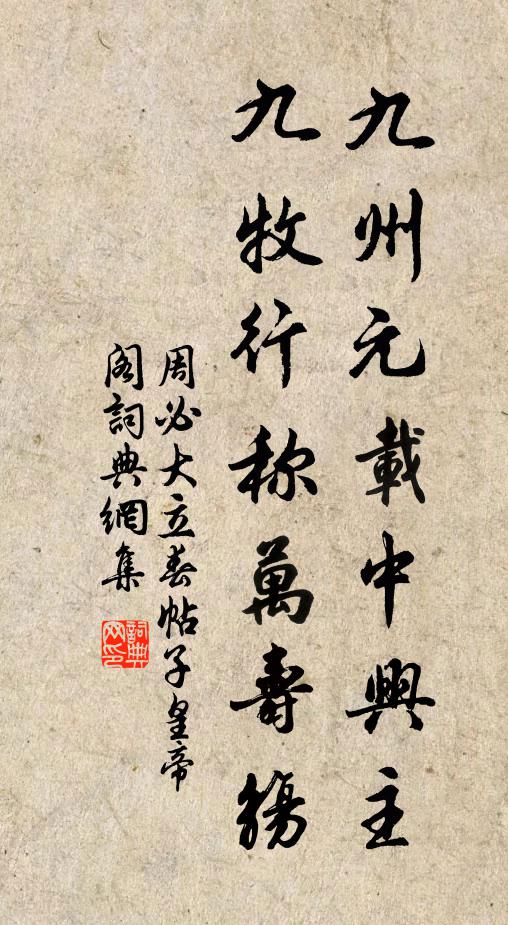 九州元載中興主
九牧行称萬壽觴
周必大立春帖子皇帝
閣詞典網集
詞典
网印